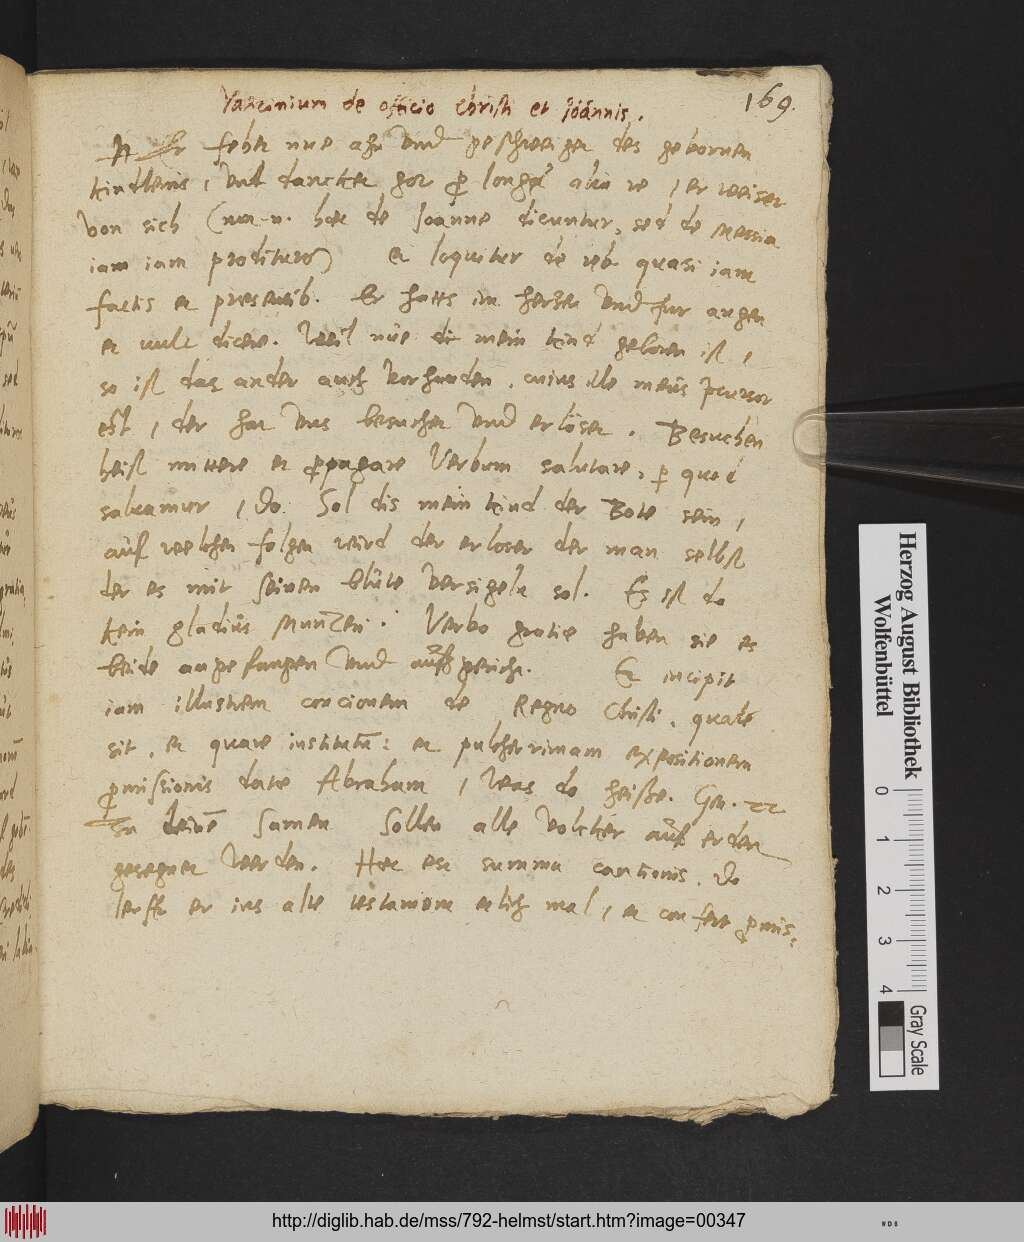 Vaticinium de officio Christi et Joannis.
169.
Er hebt nue ahn und geschweiget des gebornen
kindleins, und dancket got longe alia re, er weiset
von sich (non n. haec de Joanne dicuntur, sed de Messia
iam iam prodituro) et loquitur de reb. quasi iam
factis et presentib. Er hatts im hertzen und fur augen
et vult dicere. Weil nue dis mein kind geboren ist,
so ist das ander auch vorhanden, cuius ille meus
est, der hat uns besuchet und erlöset. Besuchen
heist mittere et ppagare Verbum salutare, p quod
saluamur, Do. Sol dis mein kind der Bote sein,
auf welchen folgen wird der erloser der man selbst
der es mit seinen blute versigeln sol. Es ist do
kein gladius Muntzeri. Verbo gratie haben sie es
beide angefangen und aufgericht. Et incipit
iam illustrem concionem de Regno Christi, quale
sit, et quare institutu: et pulcherrimam expositionem
pmissionis date Abraham, was do heisse. Gen. 22
In deine Samen Sollen alle volcker auf erden
gesegnet werden. Hec est summa cantionis. Do
leufft er ins alte testament etlich mal, et confert pmis:
Herzog August Bibliothek
Wolfenbüttel
0 1 2 3 4
Gray Scale
http://diglib.hab.de/mss/792-helmst/start.htm?image=00347